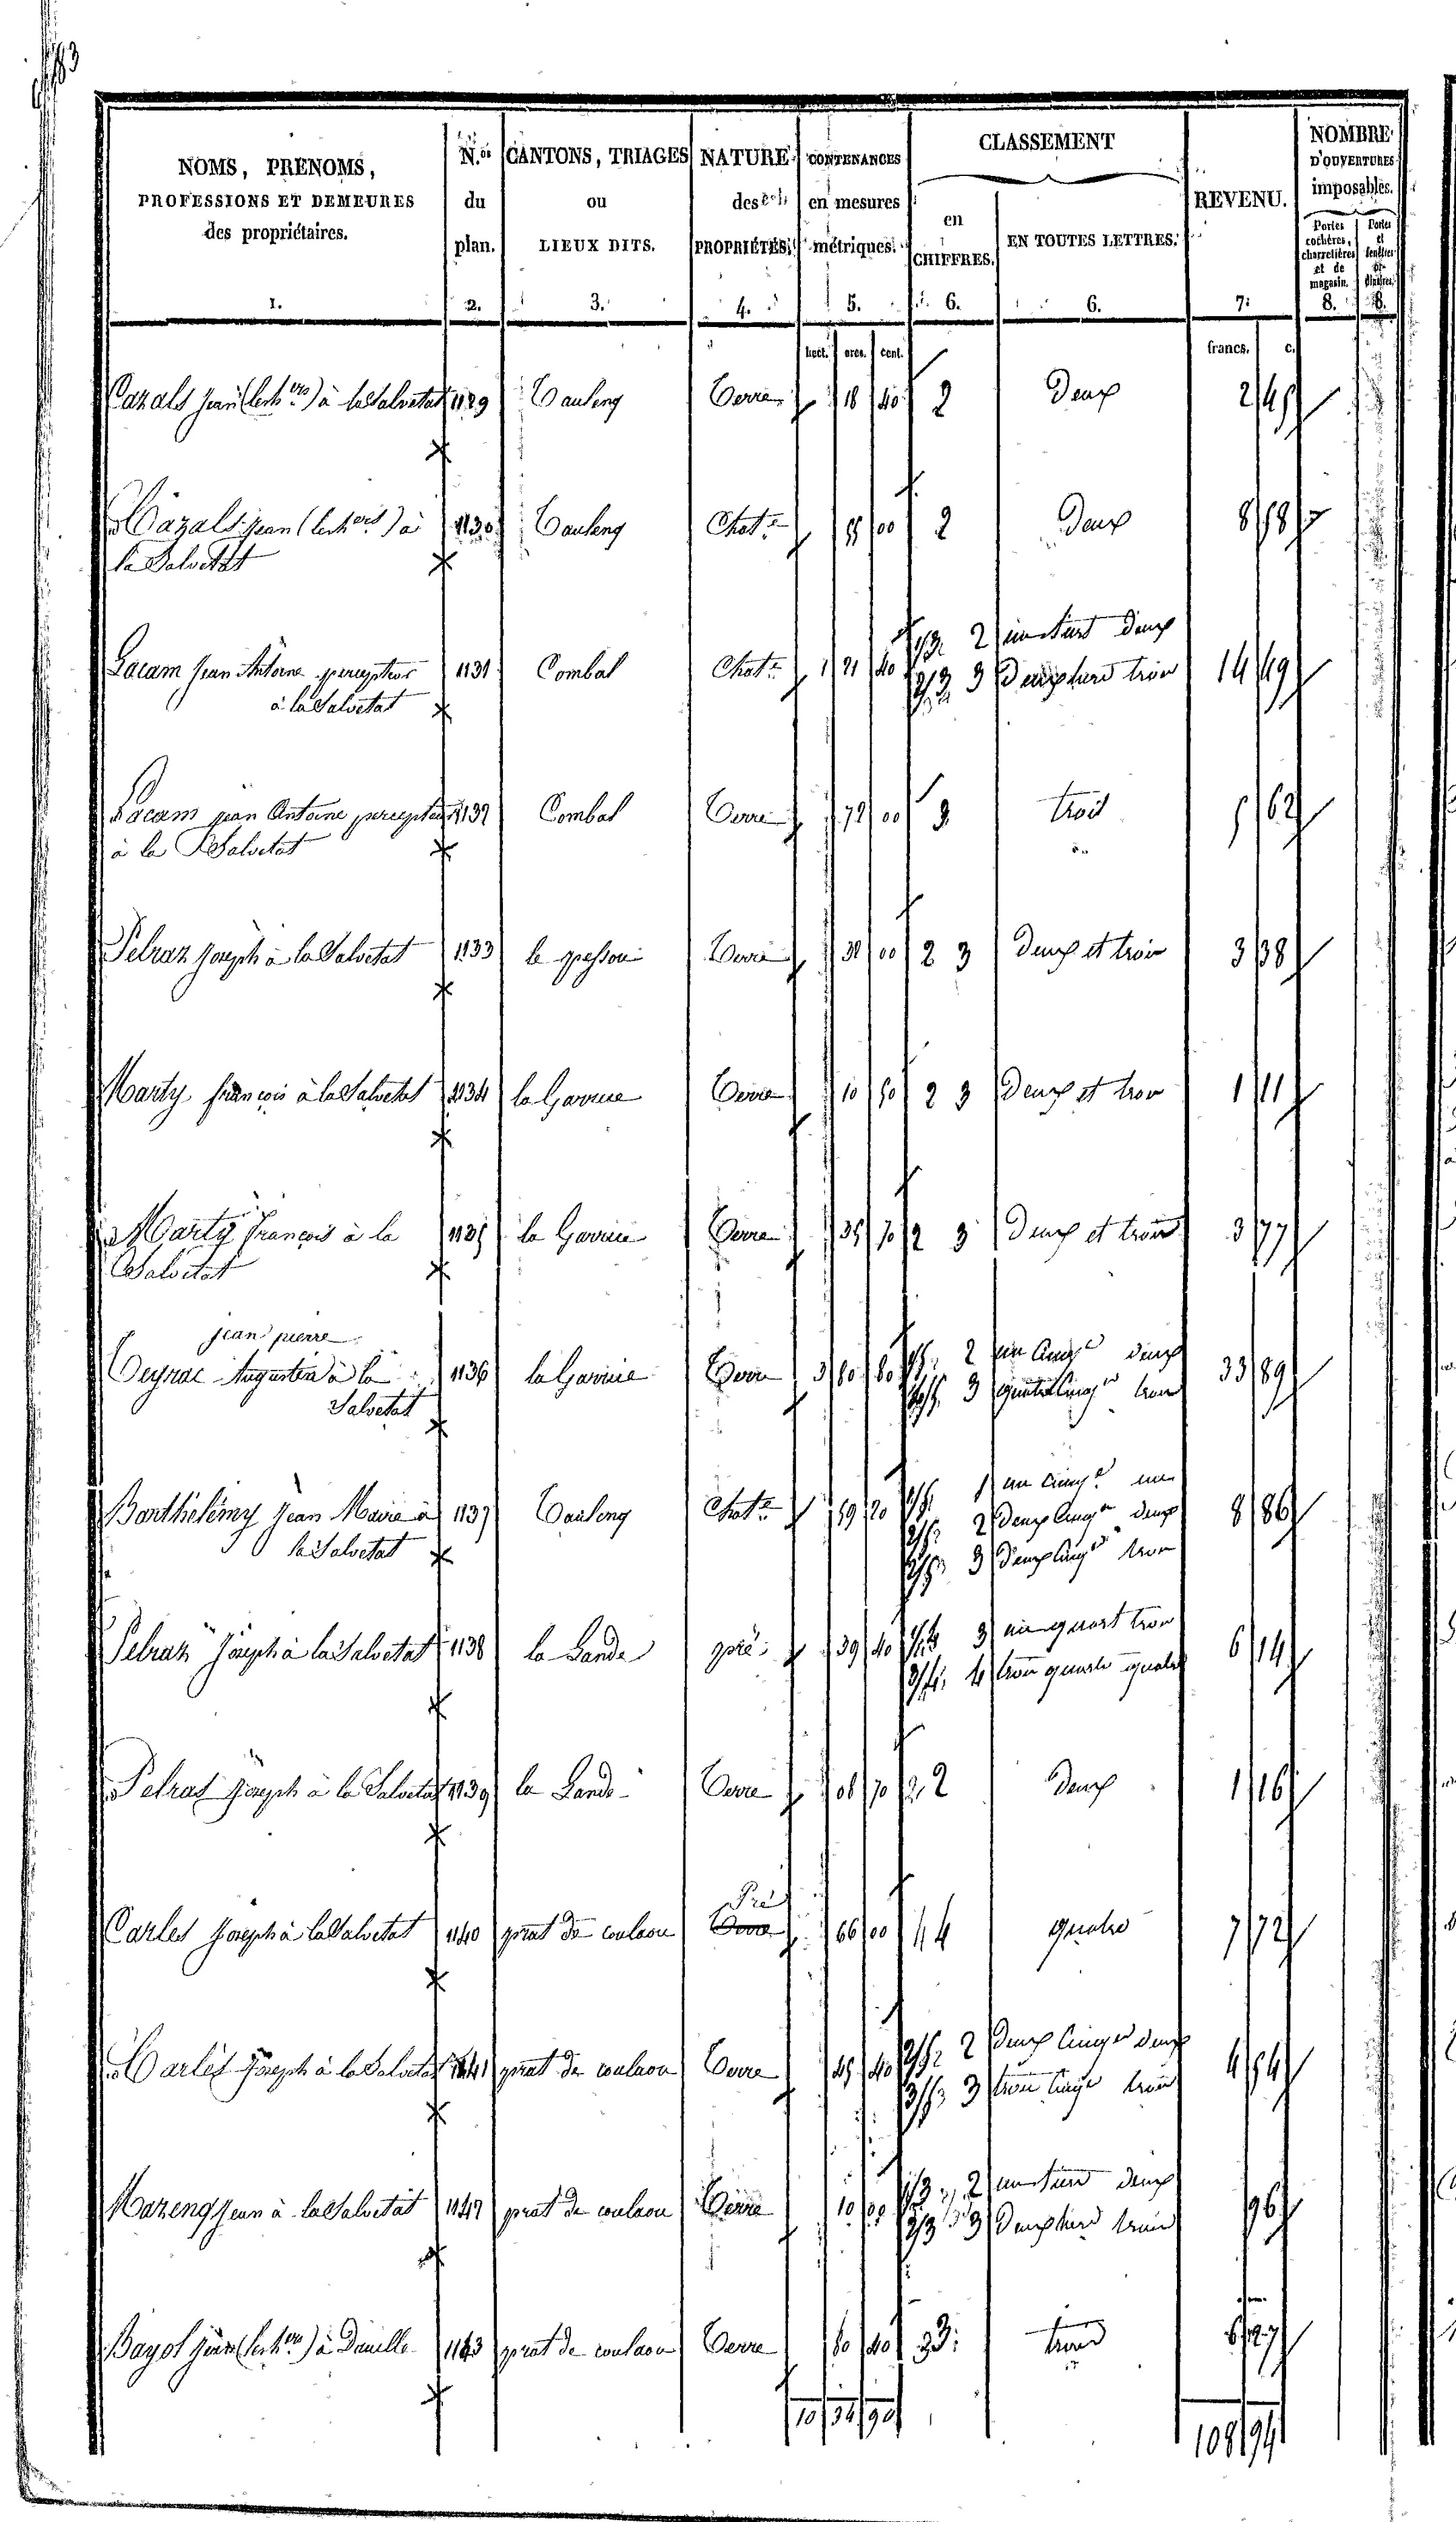 NOMS, PRENOMS,
PROFESSIONS ET DEMEURES
des propriétaires.
1.
N.os
du
plan.
2.
CANTONS, TRIAGES
ou
LIEUX DITS.
3.
NATURE
des
PROPRIÉTÉS.
4.
CONTENANCES
en mesures
métriques.
5.
CLASSEMENT
en
CHIFFRES.
6.
EN TOUTES LETTRES.
6.
REVENU.
7.
NOMBRE
D'OUVERTURES
imposables.
Portes cochères, charretières et de magasin.
8.
Portes et fenêtres
8.
hect. ares. cent.
francs. c.
Cazals jean (les h.ers) à la Salvetat 1129 Tauleng Terre 18 40 2 Deux 2 45
Cazals jean (les hers) à 1130 Tauleng Chat.e 55 00 2 Deux 8 58
la Salvetat
Lacam jean Antoine percepteur 1131 Combal Chat.e 1 21 40 1/3 2 un tiers deux
à la Salvetat 2/3 3 Deux tiers trois 14 49
Lacam jean Antoine percepteur 1132 Combal Terre 72 00 3 trois 5 62
à la Salvetat
Pelras Joseph à la Salvetat 1133 Terre 32 00 2 3 Deux et trois 3 38
Marty françois à la Salvetat 1134 la Garrine Terre 10 50 2 3 Deux et trois 1 11
Marty françois à la 1135 la Garrine Terre 35 70 2 3 Deux et trois 3 77
Salvetat
jean pierre
Teyrac Augustin à la 1136 la Garrine Terre 3 80 80 1/5 2 un cinq.e deux 33 89
Salvetat 4/5 3 quatre cinq.es trois
Barthélémy jean Marie à 1137 Tauleng Chat.e 59 20 1/5 1 un cinq.e un
la Salvetat 2/5 2 Deux cinq.es deux 8 86
2/5 3 deux cinq.es trois
Pelras Joseph à la Salvetat 1138 la Lande pré 39 40 1/4 3 un quart trois 6 14
3/4 4 trois quarts quatre
Pelras Joseph à la Salvetat 1139 la Lande Terre 08 70 2 Deux 1 16
Pré
Carles Joseph à la Salvetat 1140 prat de coulaou Terre 66 00 4 quatre 7 72
Carles Joseph à la Salvetat 1141 prat de coulaou Terre 45 40 2/5 2 Deux cinq.es deux 4 54
3/5 3 trois cinq.es trois
Mazeng jean à la Salvetat 1142 prat de coulaou Terre 10 00 1/3 2 un tiers deux 96
2/3 3 Deux tiers trois
Bayol jean (les h.ers) à 1143 prat de coulaou Terre 80 40 3 trois 6 27
10 34 90
108 94